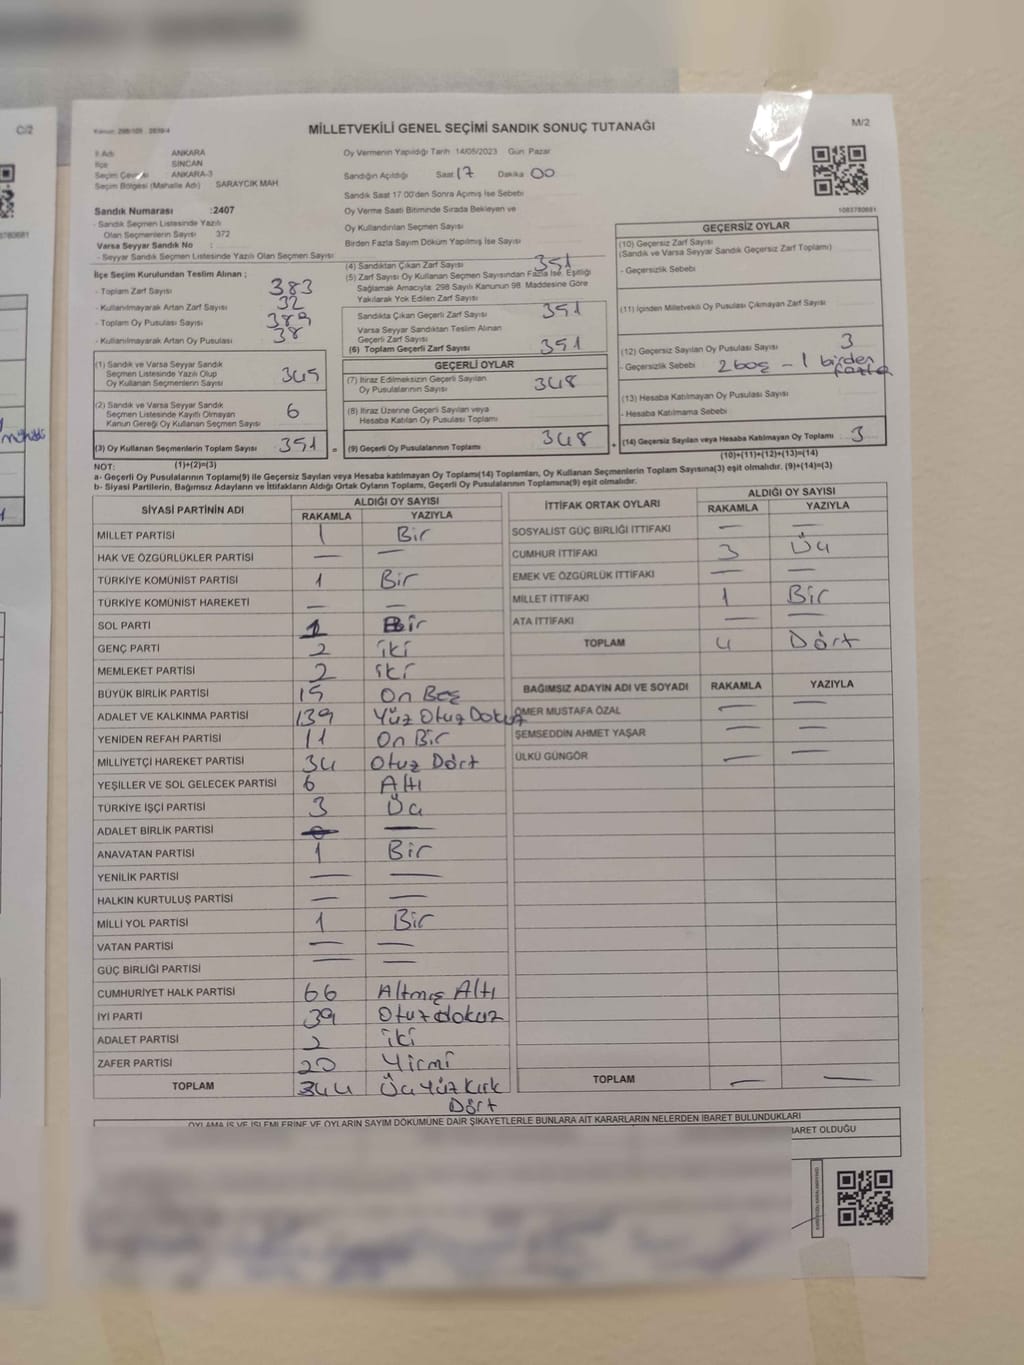 C/2
MİLLETVEKİLİ GENEL SEÇİMİ SANDIK SONUÇ TUTANAĞI
M/2
İl Adı ANKARA
İlçe SİNCAN
Seçim Çevresi ANKARA-3
Seçim Bölgesi (Mahalle Adı) SARAYCIK MAH
Oy Vermenin Yapıldığı Tarih 14/05/2023 Gün Pazar
Sandığın Açıldığı Saat 17 Dakika 00
Sandık Saat 17 00'den Sonra Açımış İse Sebebi
Oy Verme Saati Bitiminde Sırada Bekleyen ve
Oy Kullandırılan Seçmen Sayısı
Birden Fazla Sayım Döküm Yapılmış İse Sayısı
1083780681
Sandık Numarası :2407
- Sandık Seçmen Listesinde Yazılı
Olan Seçmenlerin Sayısı 372
Varsa Seyyar Sandık No :
- Seyyar Sandık Seçmen Listesinde Yazılı Olan Seçmen Sayısı
İlçe Seçim Kurulundan Teslim Alınan ;
- Toplam Zarf Sayısı 383
- Kullanılmayarak Artan Zarf Sayısı 32
- Toplam Oy Pusulası Sayısı 389
- Kullanılmayarak Artan Oy Pusulası 38
(1) Sandık ve Varsa Seyyar Sandık
Seçmen Listesinde Yazılı Olup
Oy Kullanan Seçmenlerin Sayısı 345
(2) Sandık ve Varsa Seyyar Sandık
Seçmen Listesinde Kayıtlı Olmayan
Kanun Gereği Oy Kullanan Seçmen Sayısı 6
(3) Oy Kullanan Seçmenlerin Toplam Sayısı 351 =
(4) Sandıktan Çıkan Zarf Sayısı 351
(5) Zarf Sayısı Oy Kullanan Seçmen Sayısından Fazla İse, Eşitliği
Sağlamak Amacıyla 298 Sayılı Kanunun 98. Maddesine Göre
Yakılarak Yok Edilen Zarf Sayısı
Sandıkta Çıkan Geçerli Zarf Sayısı 351
Varsa Seyyar Sandıktan Teslim Alınan
Geçerli Zarf Sayısı
(6) Toplam Geçerli Zarf Sayısı 351
GEÇERLİ OYLAR
(7) İtiraz Edilmeksizin Geçerli Sayılan
Oy Pusulalarının Sayısı 348
(8) İtiraz Üzerine Geçerli Sayılan veya
Hesaba Katılan Oy Pusulası Toplamı
(9) Geçerli Oy Pusulalarının Toplamı 348 +
GEÇERSİZ OYLAR
(10) Geçersiz Zarf Sayısı
(Sandık ve Varsa Seyyar Sandık Geçersiz Zarf Toplamı)
- Geçersizlik Sebebi
(11) İçinden Milletvekili Oy Pusulası Çıkmayan Zarf Sayısı
(12) Geçersiz Sayılan Oy Pusulası Sayısı 3
- Geçersizlik Sebebi 2 boş - 1 birden fazla
(13) Hesaba Katılmayan Oy Pusulası Sayısı
- Hesaba Katılmama Sebebi
(14) Geçersiz Sayılan veya Hesaba Katılmayan Oy Toplamı 3
NOT: (1)+(2)=(3)
(10)+(11)+(12)+(13)=(14)
a- Geçerli Oy Pusulalarının Toplamı(9) ile Geçersiz Sayılan veya Hesaba katılmayan Oy Toplamı(14) Toplamları, Oy Kullanan Seçmenlerin Toplam Sayısına(3) eşit olmalıdır. (9)+(14)=(3)
b- Siyasi Partilerin, Bağımsız Adayların ve İttifakların Aldığı Ortak Oyların Toplamı, Geçerli Oy Pusulalarının Toplamına(9) eşit olmalıdır.
SİYASİ PARTİNİN ADI ALDIĞI OY SAYISI
RAKAMLA YAZIYLA
MİLLET PARTİSİ 1 Bir
HAK VE ÖZGÜRLÜKLER PARTİSİ — —
TÜRKİYE KOMÜNİST PARTİSİ 1 Bir
TÜRKİYE KOMÜNİST HAREKETİ — —
SOL PARTİ 1 Bir
GENÇ PARTİ 2 iki
MEMLEKET PARTİSİ 2 iki
BÜYÜK BİRLİK PARTİSİ 15 On Beş
ADALET VE KALKINMA PARTİSİ 139 Yüz Otuz Dokuz
YENİDEN REFAH PARTİSİ 11 On Bir
MİLLİYETÇİ HAREKET PARTİSİ 34 Otuz Dört
YEŞİLLER VE SOL GELECEK PARTİSİ 6 Altı
TÜRKİYE İŞÇİ PARTİSİ 3 Üç
ADALET BİRLİK PARTİSİ — —
ANAVATAN PARTİSİ 1 Bir
YENİLİK PARTİSİ — —
HALKIN KURTULUŞ PARTİSİ — —
MİLLİ YOL PARTİSİ 1 Bir
VATAN PARTİSİ — —
GÜÇ BİRLİĞİ PARTİSİ — —
CUMHURİYET HALK PARTİSİ 66 Altmış Altı
İYİ PARTİ 39 Otuz dokuz
ADALET PARTİSİ 2 iki
ZAFER PARTİSİ 20 Yirmi
TOPLAM 344 Üç Yüz Kırk
Dört
İTTİFAK ORTAK OYLARI ALDIĞI OY SAYISI
RAKAMLA YAZIYLA
SOSYALİST GÜÇ BİRLİĞİ İTTİFAKI — —
CUMHUR İTTİFAKI 3 Üç
EMEK VE ÖZGÜRLÜK İTTİFAKI — —
MİLLET İTTİFAKI 1 Bir
ATA İTTİFAKI — —
TOPLAM 4 Dört
BAĞIMSIZ ADAYIN ADI VE SOYADI RAKAMLA YAZIYLA
ÖMER MUSTAFA ÖZAL — —
ŞEMSEDDİN AHMET YAŞAR — —
ÜLKÜ GÜNGÖR — —
TOPLAM — —
OYLAMA İŞ VE İŞLEMLERİNE VE OYLARIN SAYIM DÖKÜMÜNE DAİR ŞİKAYETLERLE BUNLARA AİT KARARLARIN NELERDEN İBARET BULUNDUKLARI
İBARET OLDUĞU